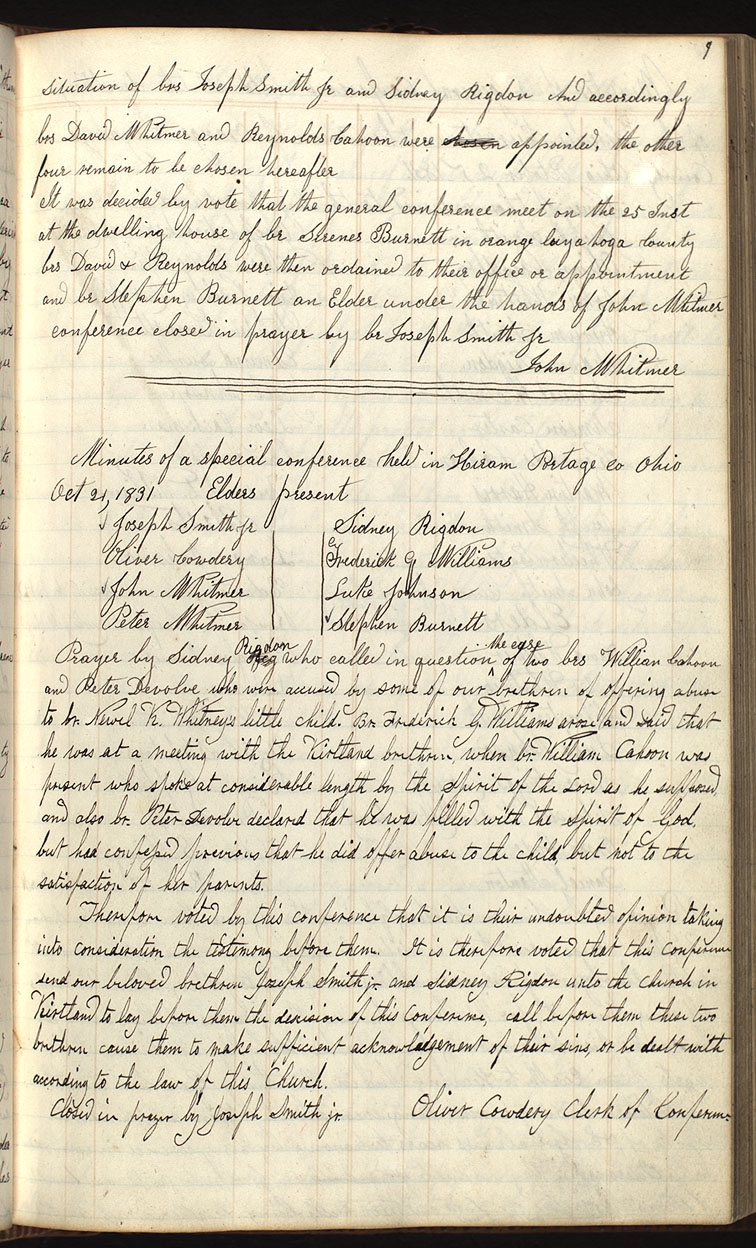 9
situation of brs Joseph Smith Jr and Sidney Rigdon And accordingly
brs David Whitmer and Reynolds Cahoon were chosen appointed, the other
four remain to be chosen hereafter
It was decided by vote that the general conference meet on the 25 Inst
at the dwelling house of br Sirenes Burnett in orange Cuyahoga County
brs David & Reynolds were then ordained to their office or appointment
and br Stephen Burnett an Elder under the hands of John Whitmer
conference closed in prayer by br Joseph Smith Jr
John Whitmer
Minutes of a special conference held in Hiram Portage co Ohio
Oct 21, 1831 Elders present
Joseph Smith Jr Sidney Rigdon
Oliver Cowdery Frederick G Williams
John Whitmer Luke Johnson
Peter Whitmer Stephen Burnett
Prayer by Sidney Rigdon who called in question the case of two brs William Cahoon
and Peter Devolve who were accused by some of our brethren of offering abuse
to br. Newel K. Whitney's little child. Br. Frederick G. Williams arose and said that
he was at a meeting with the Kirtland brethren, when br. William Cahoon was
present who spoke at considerable length by the Spirit of the Lord as he supposed,
and also br. Peter Devolve declared that he was filled with the Spirit of God.
but had confessed previous that he did offer abuse to the child, but not to the
satisfaction of her parents.
Therefore voted by this conference that it is their undoubted opinion taking
into consideration the testimony before them. It is therefore voted that this conference
send our beloved brethren Joseph Smith jr. and Sidney Rigdon unto the church in
Kirtland to lay before them the decision of this conference, call before them these two
brethren cause them to make sufficient acknowledgement of their sins, or be dealt with
according to the law of this Church.
Closed in prayer by Joseph Smith jr. Oliver Cowdery Clerk of Conference